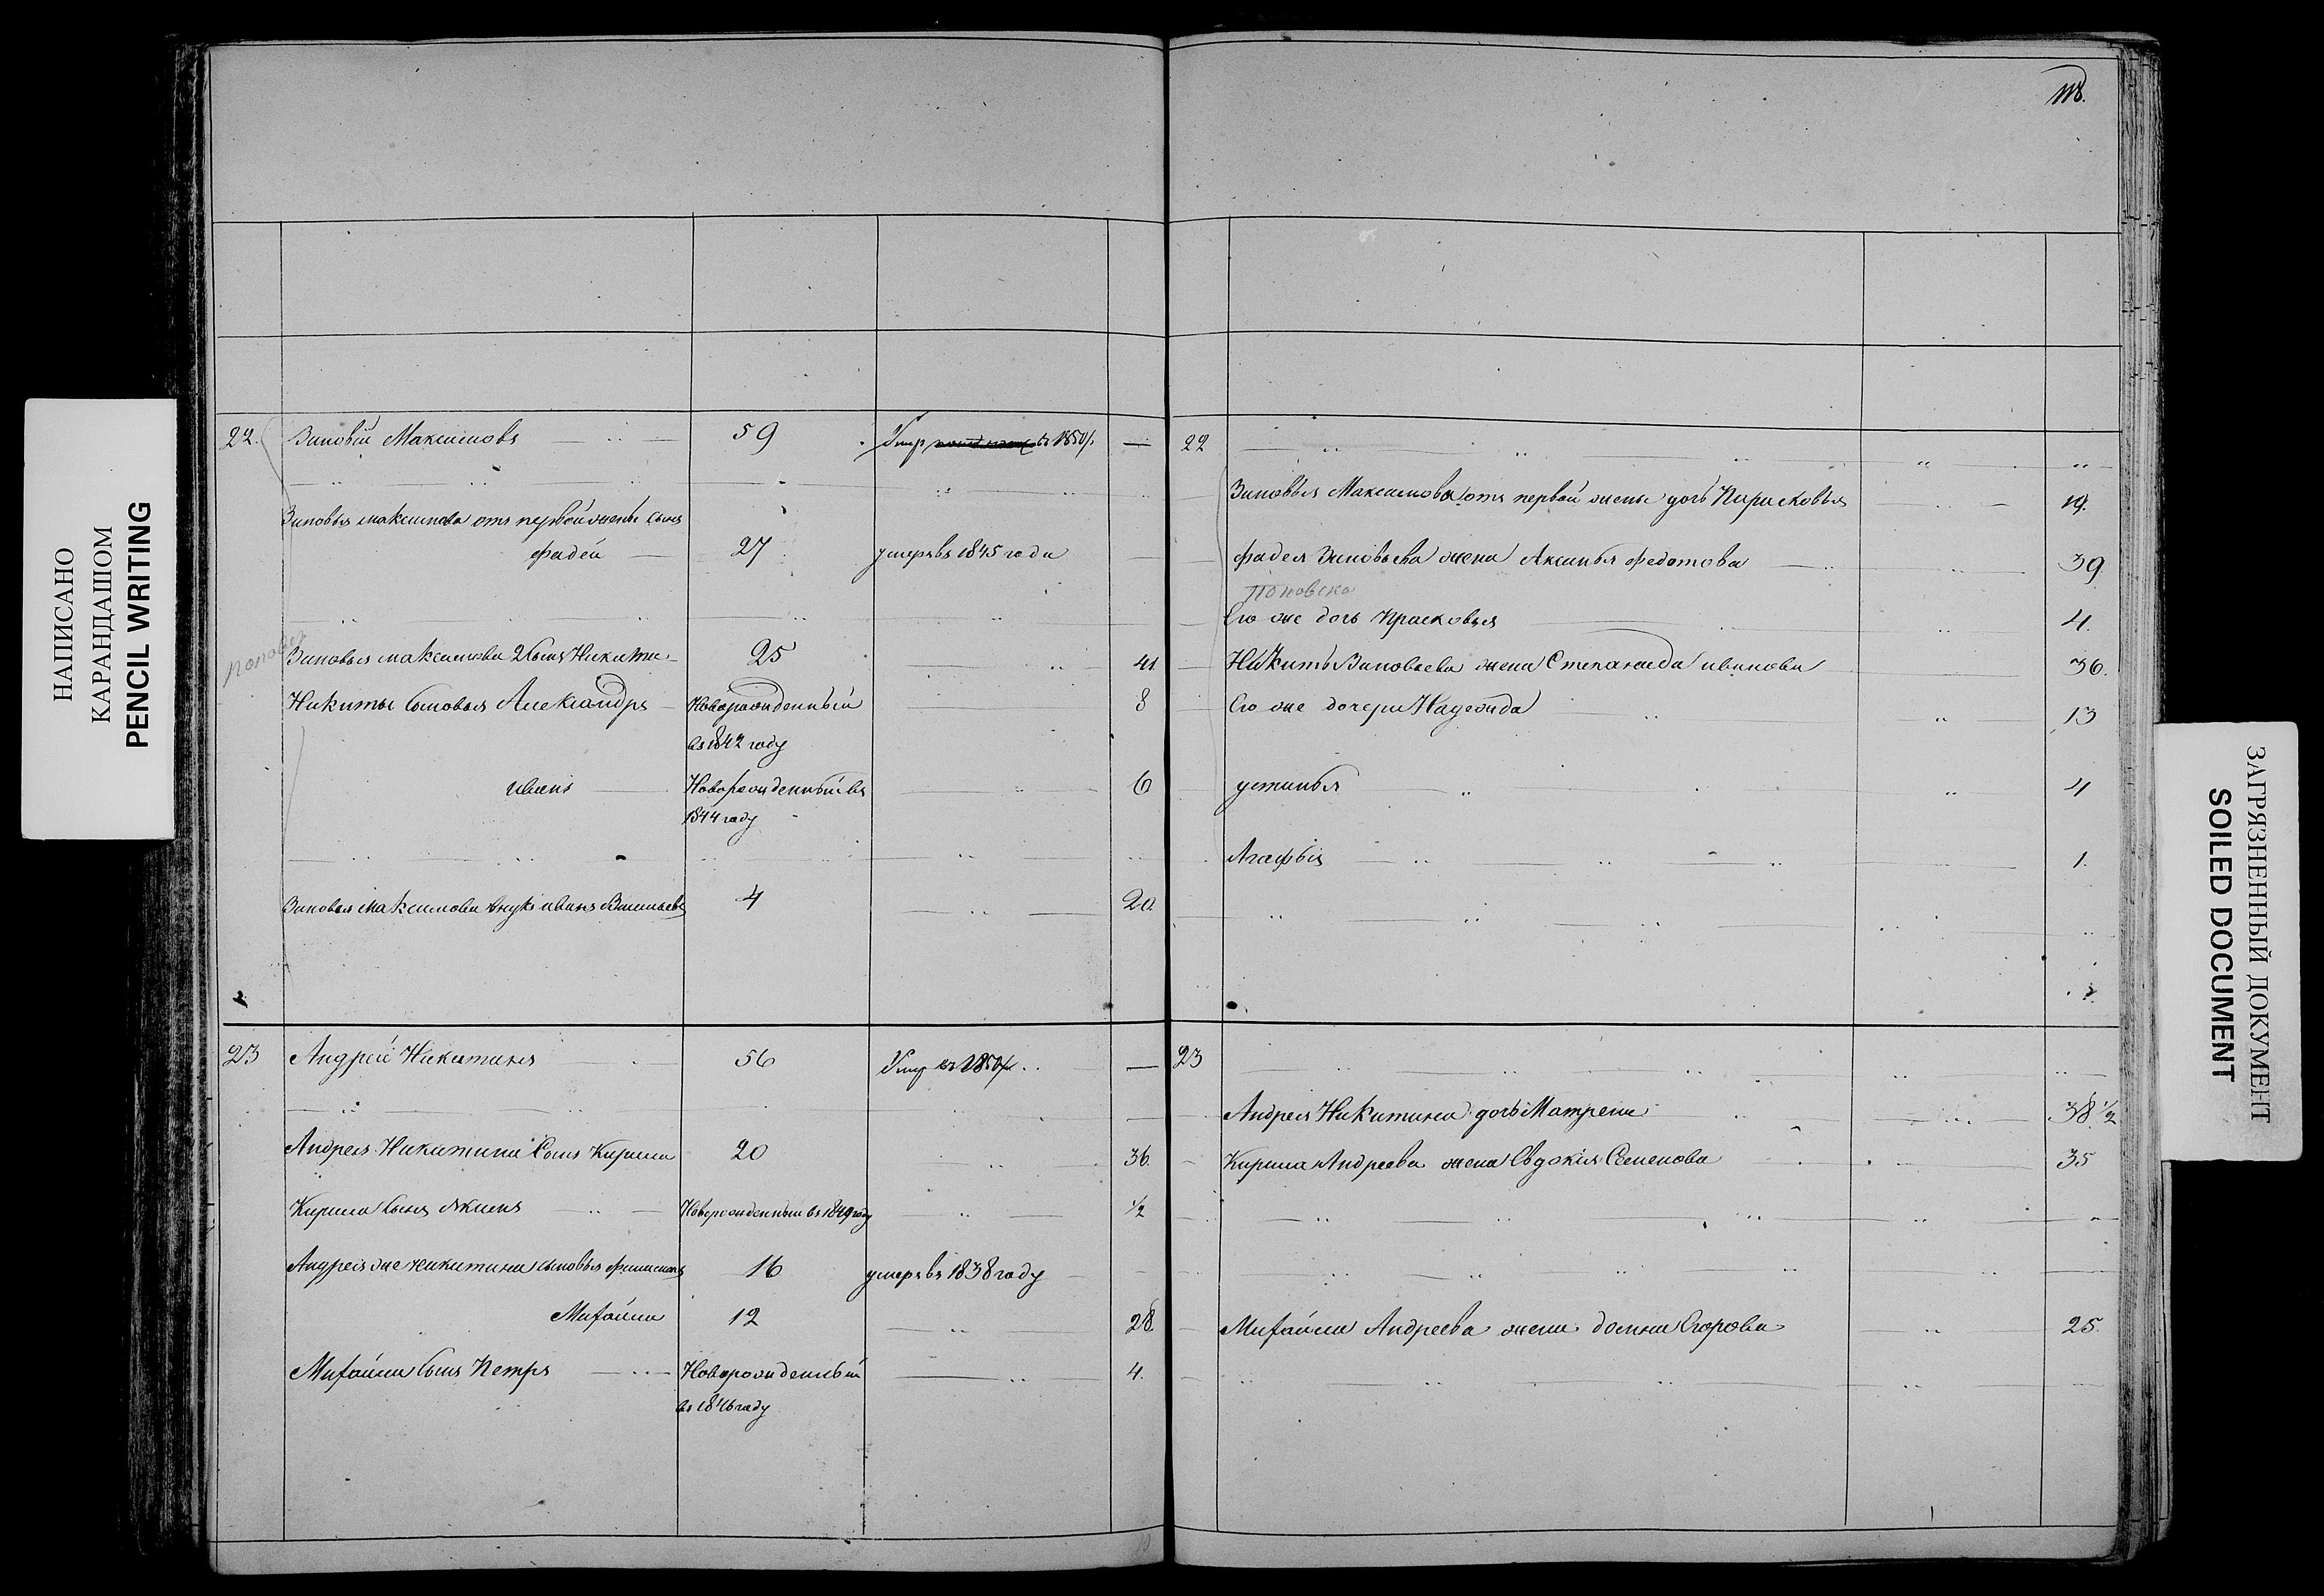 НАПИСАНО
КАРАНДАШОМ
PENCIL WRITING
118.
22. Зиновѣй Максимовъ 59 Умеръ въ 1850 г. —
Зиновья Максимова отъ первой жены сынъ
Фадей 27 умеръ въ 1845 годи
Попов
Зиновья Максимова 2 сынъ Никита 25 41
Никиты сыновья Александръ Новорожденный 8
въ 1842 году
Иванъ Новорожденный въ 6
1844 году
Зиновья Максимова внукъ Иванъ Васильевъ 4 20.
23 Андрей Никитинъ 56 Умер въ 1850 г. —
Андрея Никитина сынъ Кирила 20 36.
Кирила сынъ Якимъ Новорожденный въ 1849 году 1/2
Андрея же Никитина сыновья Филимонъ 16 умеръ въ 1838 году
Михайла 12 28
Михайла сынъ Петръ Новорожденный 4.
въ 1846 году
22
Зиновья Максимова отъ первой жены дочь Парасковья 19.
Фадея Зиновьева жена Аксинья Федотова 39
Поповска
Его же дочь Прасковья 4.
Никиты Зиновьева жена Степанида Иванова 36.
Его же дочери Надежда 13
Устинья 4
Агафья 1.
23
Андрея Никитина дочь Матрена 38 1/2
Кирила Андреева жена Евдокія Семенова 35
Михайла Андреева жена Домна Егорова 25.
ЗАГРЯЗНЕННЫЙ ДОКУМЕНТ
SOILED DOCUMENT